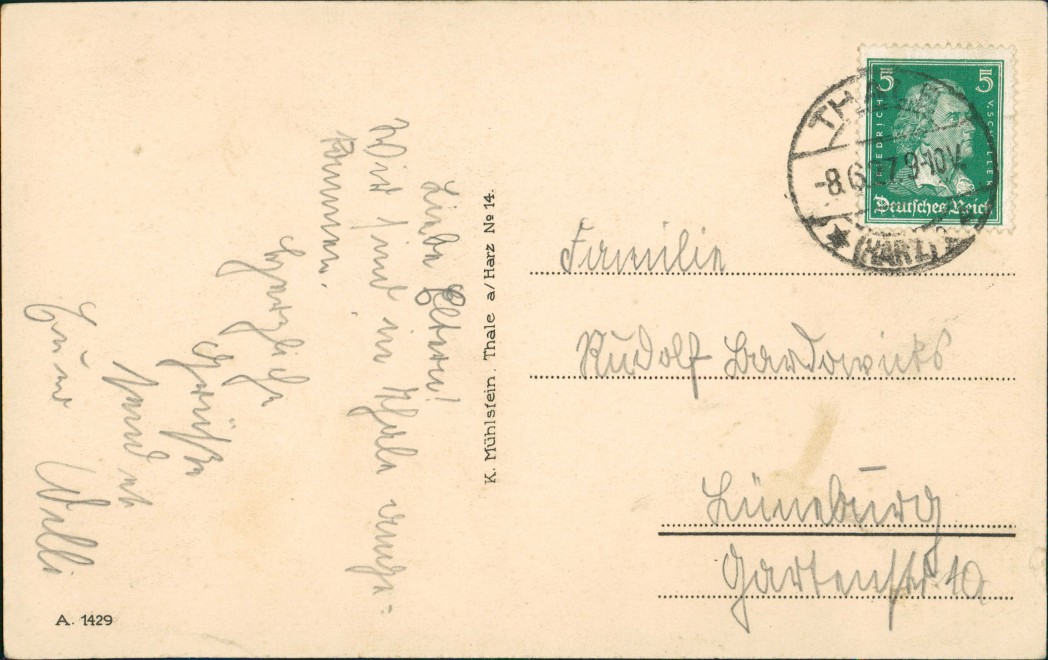 Liebe Eltern!
Wir sind in Thale ange-
kommen.
Herzliche
Grüße
sendet
Euer Willi
K. Mühlstein, Thale a/Harz № 14.
A. 1429
5 5
FRIEDRICH V. SCHILLER
Deutsches Reich
THALE
-8.6.27.9-10V.
(HARZ)
Familie
Rudolf Bardowicks
Lüneburg
Gartenstr. 1a